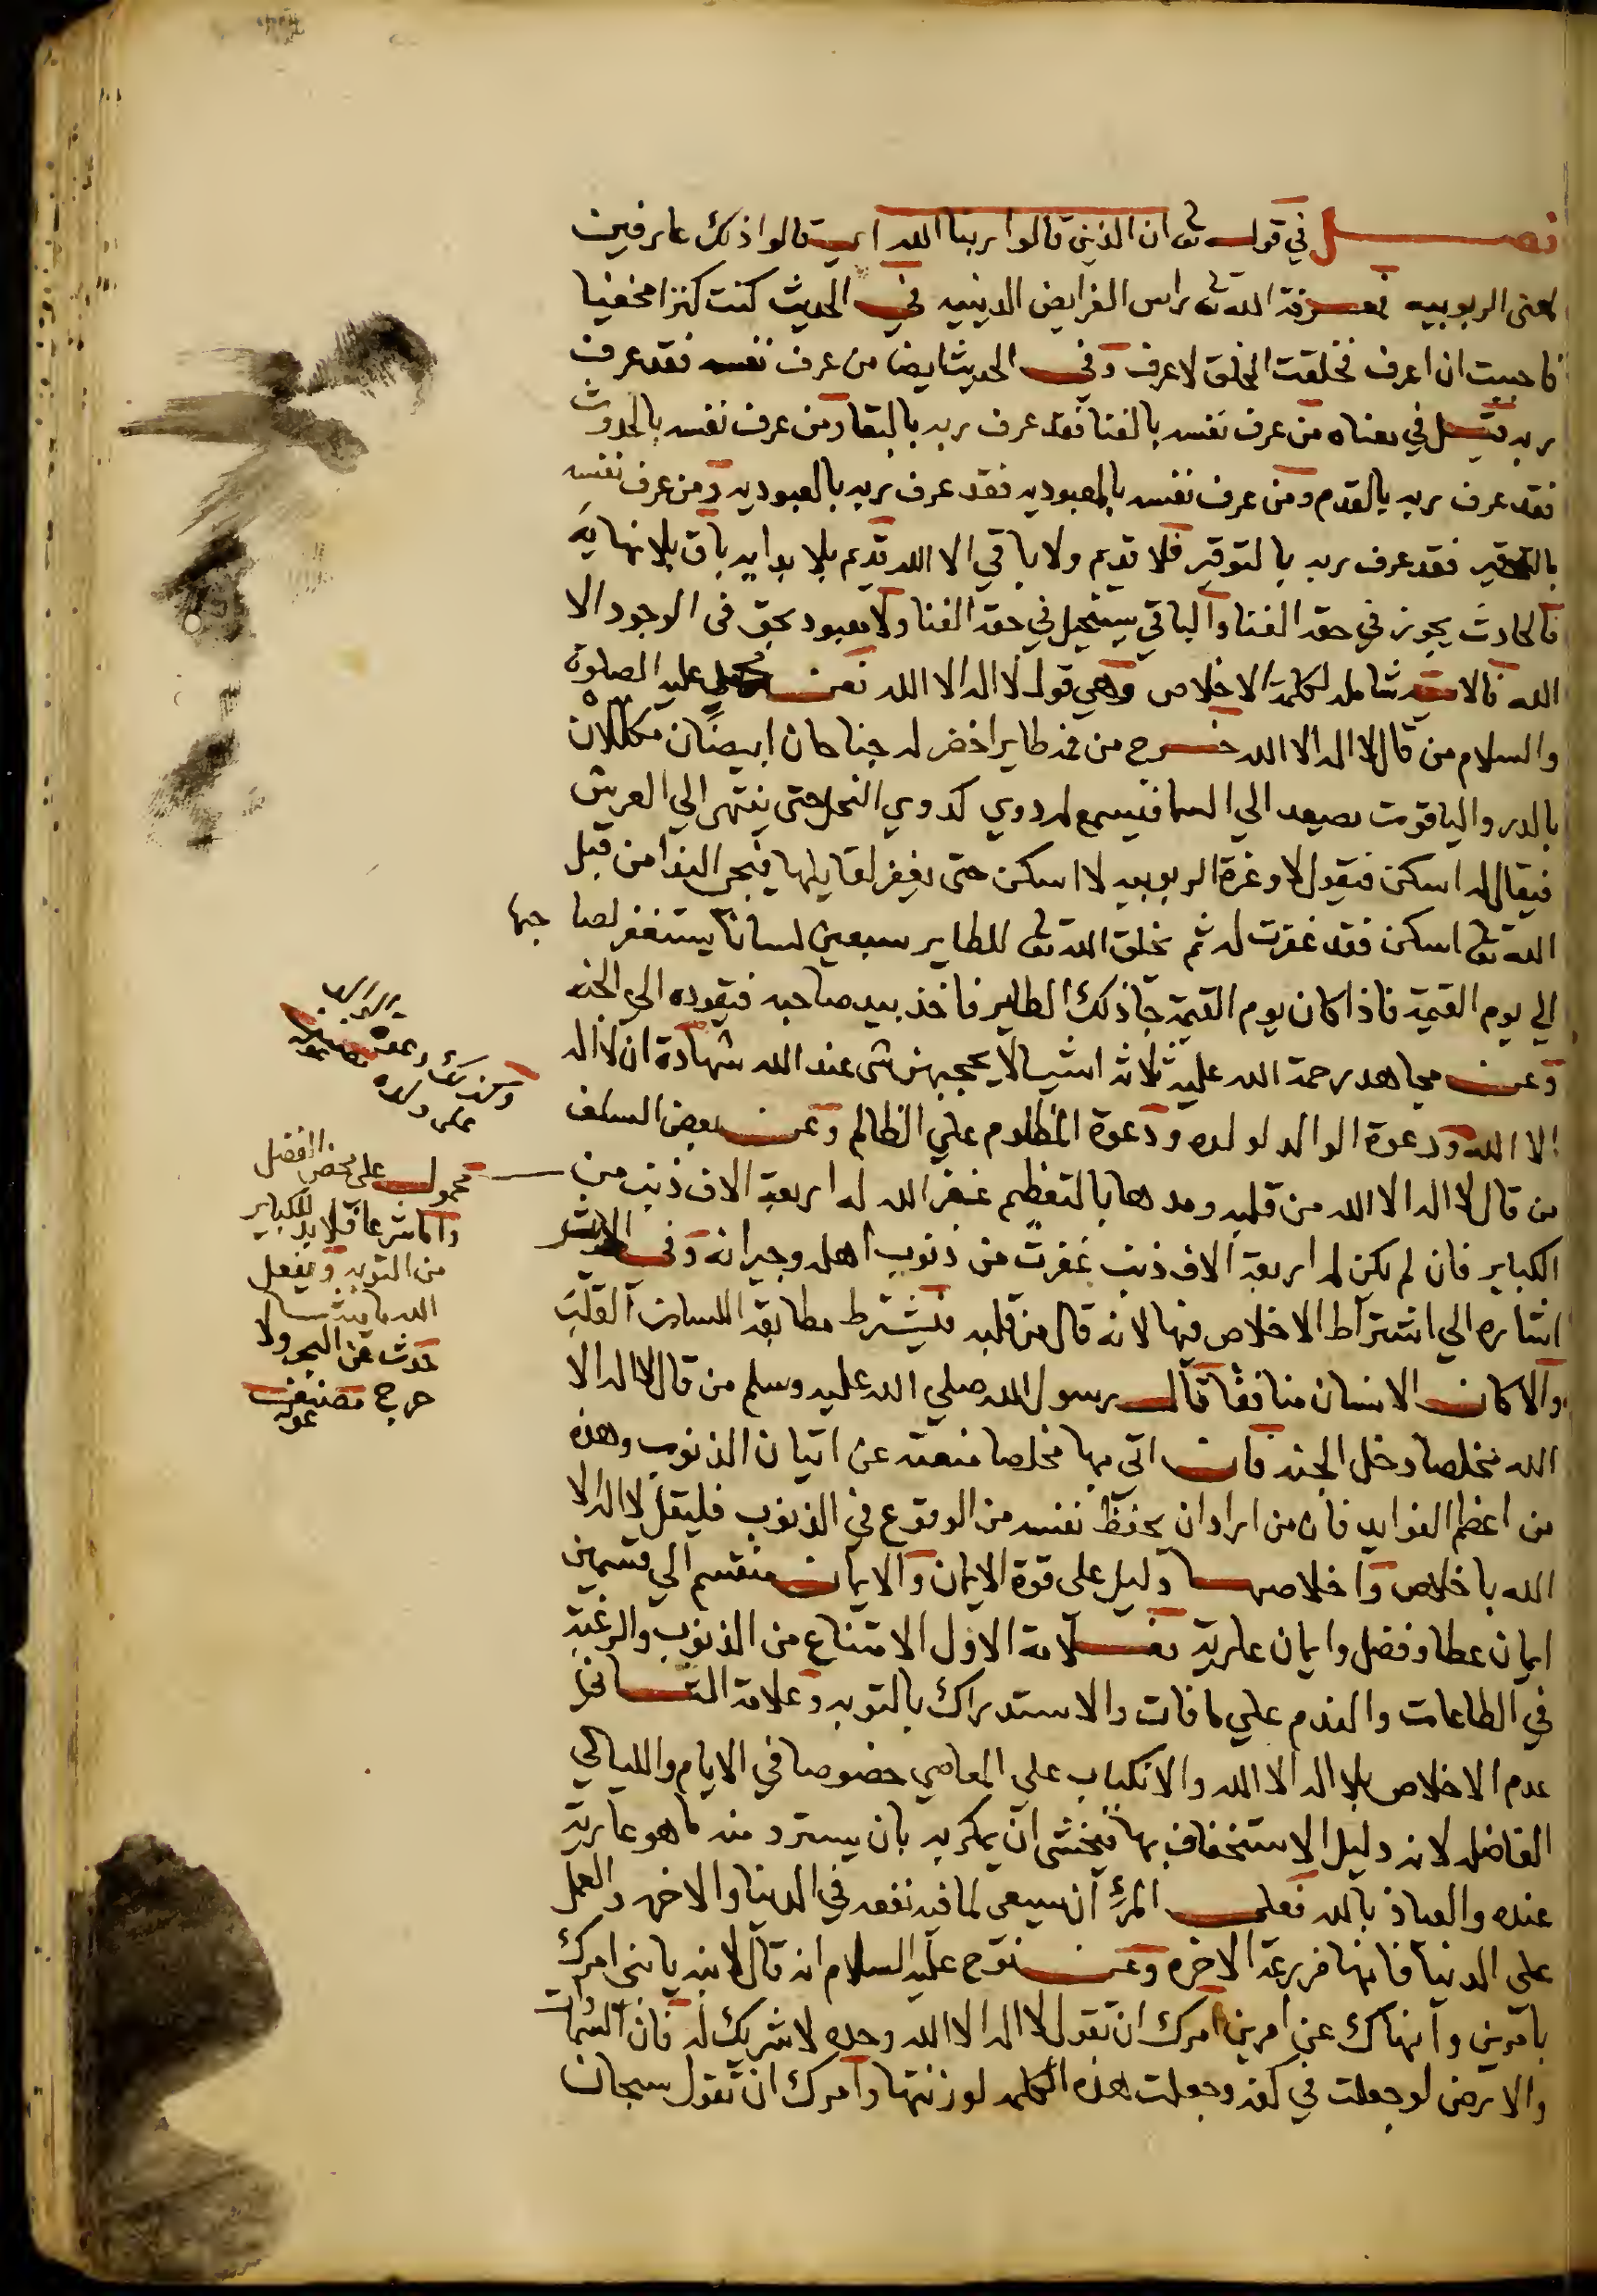 فصل في قوله تع ان الذين قالوا ربنا الله اي قالوا ذلك عارفين
لمعنى الربوبيه فمعرفة الله تع راس الفرايض الدينيه في الحديث كنت كنزا مخفيا
فاحببت ان اعرف فخلقت الخلق لاعرف وفي الحديث ايضا من عرف نفسه فقد عرف
ربه قيل في معناه من عرف نفسه بالفنا فقد عرف ربه بالبقا ومن عرف نفسه بالحدوث
فقد عرف ربه بالقدم ومن عرف نفسه بالعبوديه فقد عرف ربه بالمعبوديه ومن عرف نفسه
بالتحقير فقد عرف ربه بالتوقير فلا قديم ولا باقي الا الله قديم بلا بدايه باق بلا نهاية
فالحادث يجوز في حقه الفنا والباقي يستحيل في حقه الفنا ولا معبود بحق في الوجود الا
الله فالايه شامله لكلمة الاخلاص وهي قول لا اله الا الله فعن علي عليه الصلوة
والسلام من قال لا اله الا الله خرج من فمه طاير اخضر له جناحان ابيضان مكللان
بالدر والياقوت يصعد الي السما فيسمع له دوي كدوي النحل حتى ينتهي الي العرش
فيقال له اسكن فيقول لا وعزة الربوبيه لا اسكن حتى يغفر لقايلها فيجي الندا من قبل
الله تع اسكن فقد غفرت له ثم يخلق الله تع للطاير سبعين لسانا يستغفر لصاحبها
الي يوم القيمة فاذا كان يوم القيمة جا ذلك الطاير فاخذ بيد صاحبه فيقوده الي الجنه
وعن مجاهد رحمة الله عليه ثلاثة اشيا لا يحجبهن شي عند الله شهادة ان لا اله
الا الله ودعوة الوالد لولده ودعوة المظلوم علي الظالم وعن بعض السلف
من قال لا اله الا الله من قلبه ومدها بالتعظيم غفر الله له اربعة الاف ذنب من
الكباير فان لم يكن له اربعة الاف ذنب غفرت من ذنوب اهله وجيرانه وفي الحديث
اشاره الي اشتراط الاخلاص فيها لانه قال من قلبه فيشترط مطابقة اللسان القلب
والا كان الانسان منافقا قال رسول الله صلي الله عليه وسلم من قال لا اله الا
الله مخلصا دخل الجنه فان اتي بها مخلصا منعته عن اتيان الذنوب وهذه
من اعظم الفوايد فان من اراد ان يحفظ نفسه من الوقوع في الذنوب فليقل لا اله الا
الله باخلاص واخلاصها دليل على قوة الايمان والايمان منقسم الي قسمين
ايمان عطا وفضل وايمان عارية فعلامة الاول الامتناع من الذنوب والرغبة
في الطاعات والندم علي ما فات والاستدراك بالتوبه وعلامة الثاني
عدم الاخلاص بلا اله الا الله والانكباب علي المعاصي خصوصا في الايام والليالي
الفاضله لانه دليل الاستخفاف بها فيخشى ان يمكر به بان يسترد منه ما هو عارية
عنده والعياذ بالله فعلى المرء ان يسعى لما فيه نفعه في الدنيا والاخره والعمل
على الدنيا فانها مزرعة الاخره وعن نوح عليه السلام انه قال لابنه يا بني امرك
بامرين وانهاك عن امرين امرك ان تقول لا اله الا الله وحده لا شريك له فان السموات
والارض لو جعلت في كفه وجعلت هذه الكلمه لوزنتها وامرك ان تقول سبحان
وكذلك دعوه
على ولده
محمول على محض الفضل
واما شرعا فلا بد للكباير
من التوبه ويفعل
الله ما يشا
حدث عن البحر ولا
حرج